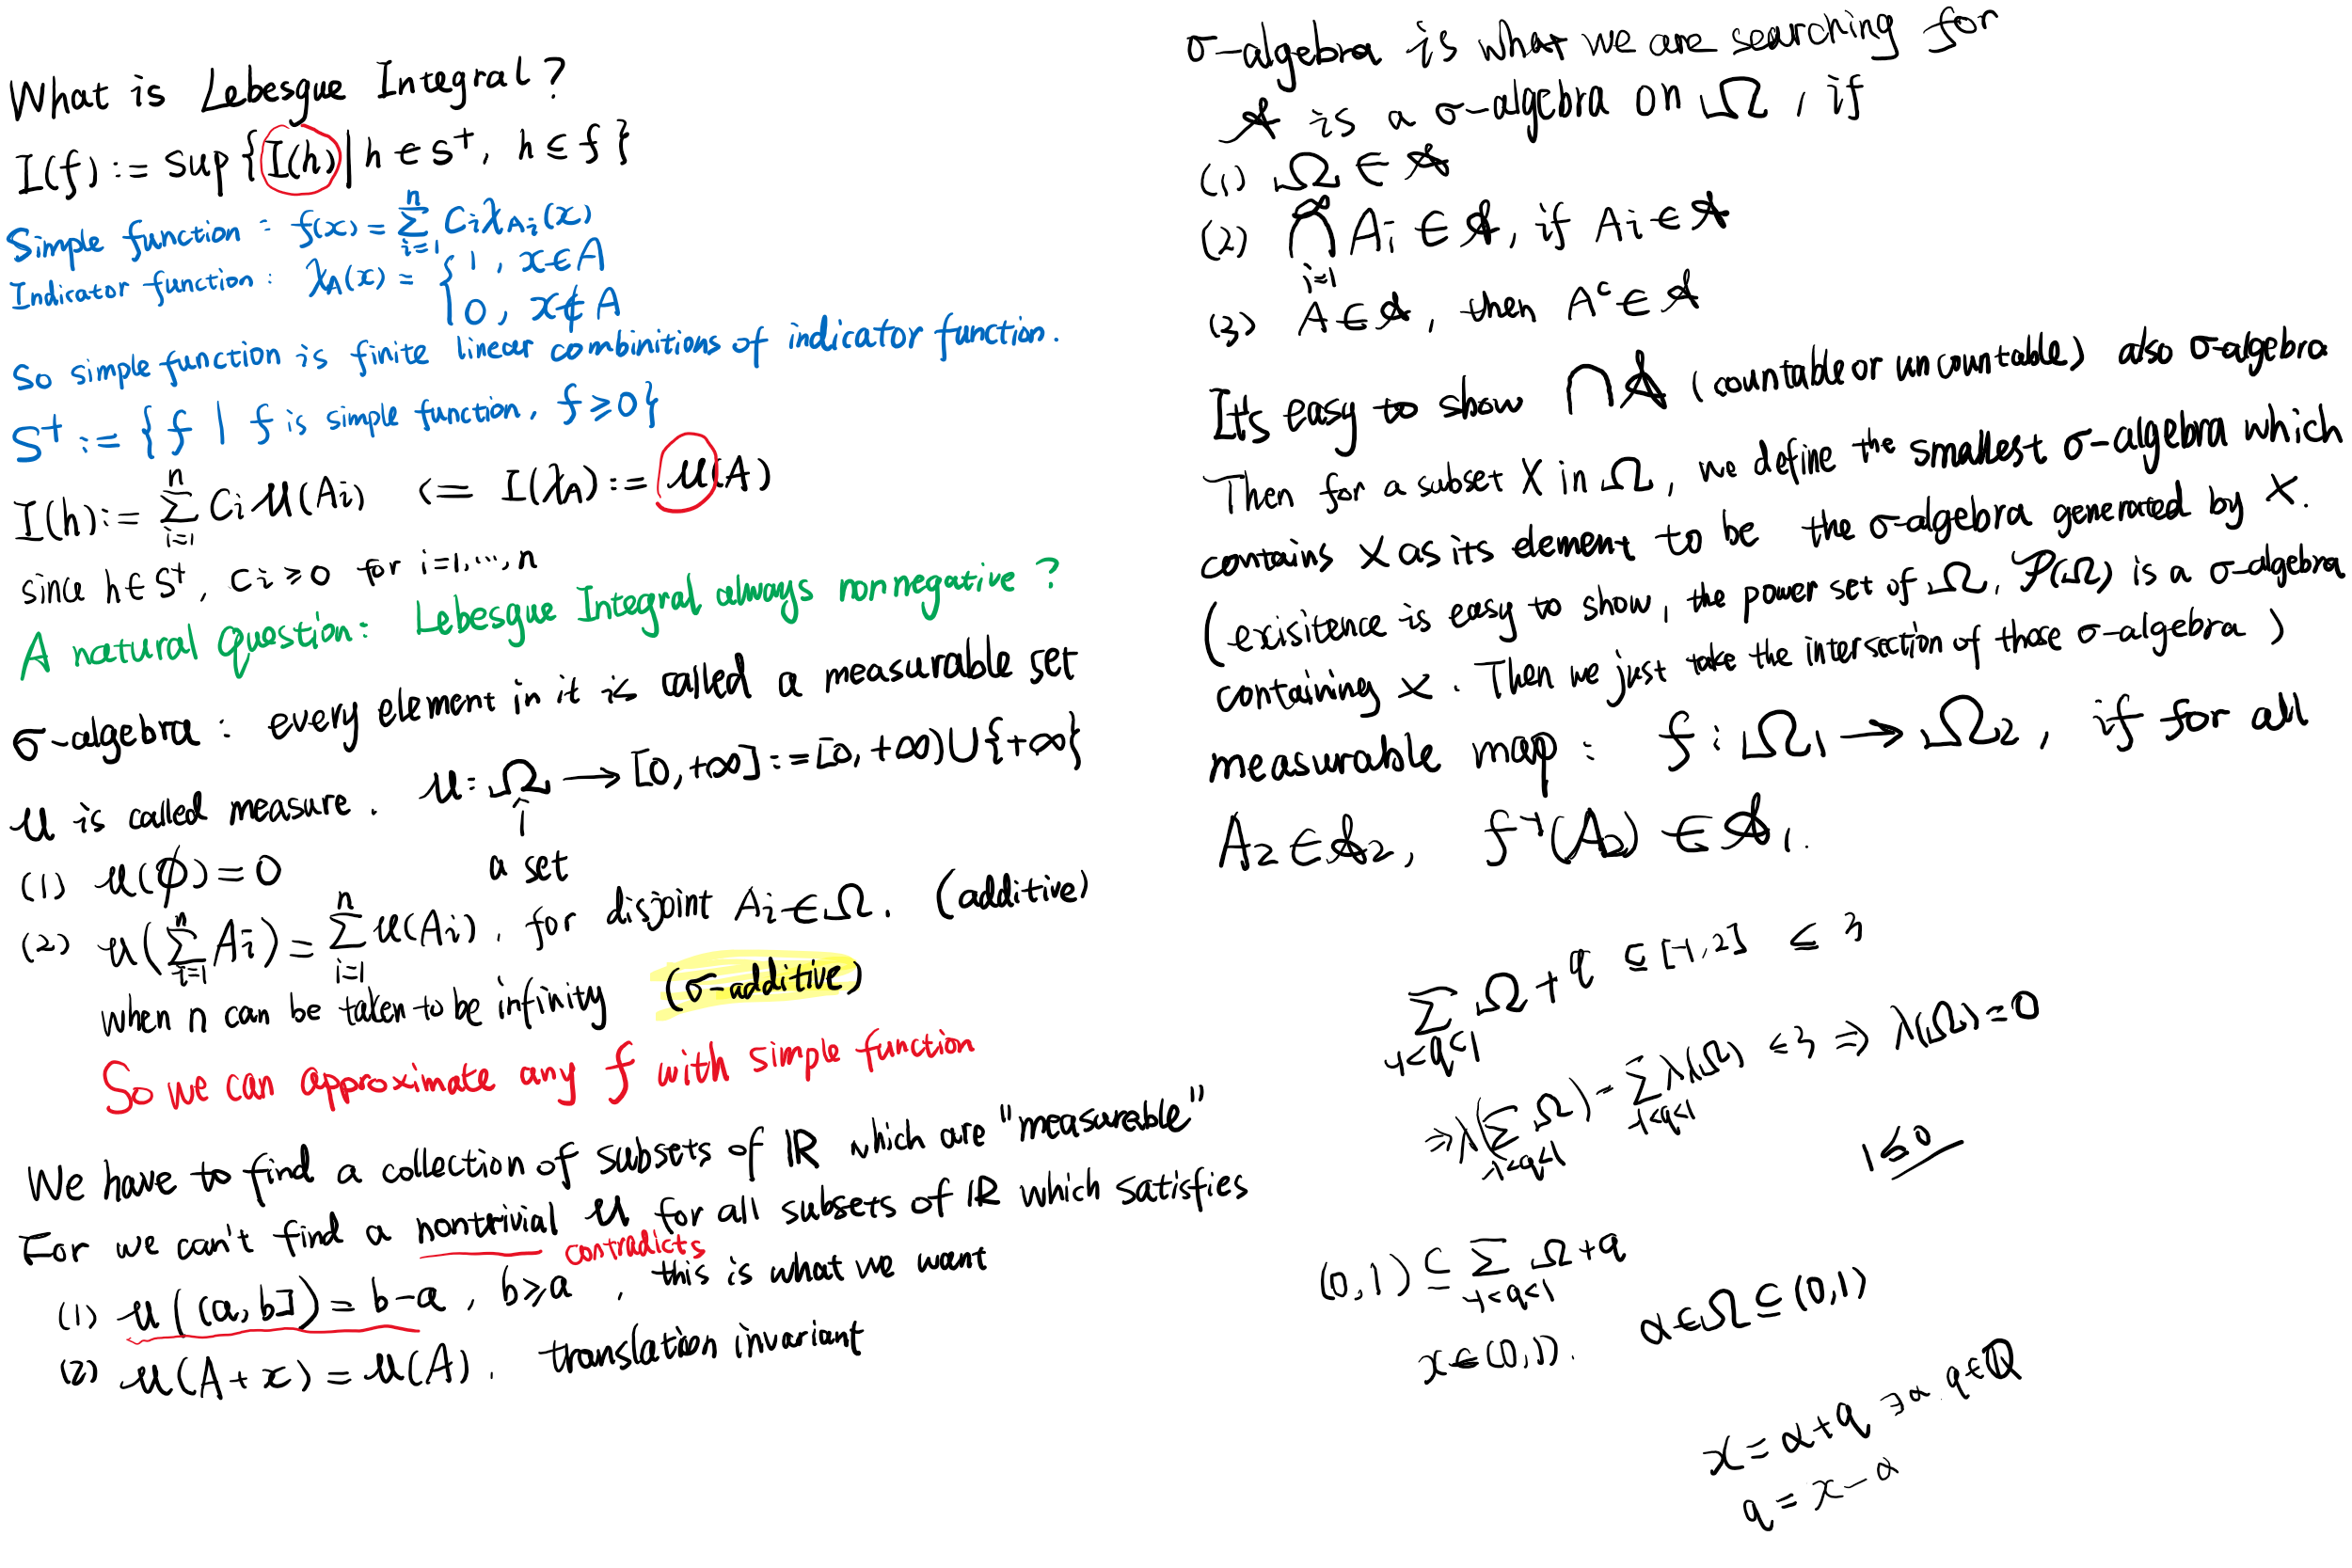 What is Lebesgue Integral?
I(f) := sup{I(h) | h ∈ S⁺, h ≤ f}
Simple function : f(x) = ∑_{i=1}^{n} C_i χ_{A_i}(x)
Indicator function : χ_A(x) = { 1, x∈A
0, x∉A
So simple function is finite linear combinitions of indicator function.
S⁺ := {f | f is simple function, f ≥ 0}
I(h) := ∑_{i=1}^{n} C_i μ(A_i) <= I(χ_A) := μ(A)
since h ∈ S⁺, C_i ≥ 0 for i=1,⋯,n
A natural question: Lebesgue Integral always nonnegative?
σ-algebra : every element in it is called a measurable set
μ is called measure. μ: Ω → [0,+∞] := [0,+∞)∪{+∞}
↑
a set
(1) μ(ϕ) = 0
(2) μ(∑_{i=1}^{n} A_i) = ∑_{i=1}^{n} μ(A_i), for disjoint A_i ∈ Ω. (additive)
when n can be taken to be infinity (σ-additive)
So we can approximate any f with simple function
We have to find a collection of subsets of ℝ which are "measurable"
For we can't find a nontrivial μ for all subsets of ℝ which satisfies
contradicts
(1) μ((a,b]) = b-a, b≥a, this is what we want
(2) μ(A+x) = μ(A). translation invariant
σ-algebra is what we are searching for
𝒜 is a σ-algebra on Ω, if
(1) Ω ∈ 𝒜
(2) ⋂_{i=1}^{∞} A_i ∈ 𝒜, if A_i ∈ 𝒜
(3) A ∈ 𝒜, then A^c ∈ 𝒜
It's easy to show ⋂𝒜 (countable or uncountable) also σ-algebra
Then for a subset X in Ω, we define the smallest σ-algebra which
contains X as its element to be the σ-algebra generated by X.
(exisitence is easy to show, the power set of Ω, 𝒫(Ω) is a σ-algebra
containing X. Then we just take the intersection of those σ-algebra)
measurable map : f: Ω₁ → Ω₂, if for all
A₂ ∈ 𝒜₂, f⁻¹(A₂) ∈ 𝒜₁.
∑_{-1<q<1} Ω+q ⊆ [-1,2] ≤ 3
⇒ λ(∑_{-1<q<1} Ω) = ∑_{-1<q<1} λ(Ω) ≤ 3 ⇒ λ(Ω)=0
1≤0
(0,1) ⊆ ∑_{-1<q<1} Ω+q
x∈(0,1). α∈Ω⊆(0,1)
x = α+q ∃α q∈ℚ
q = x-α